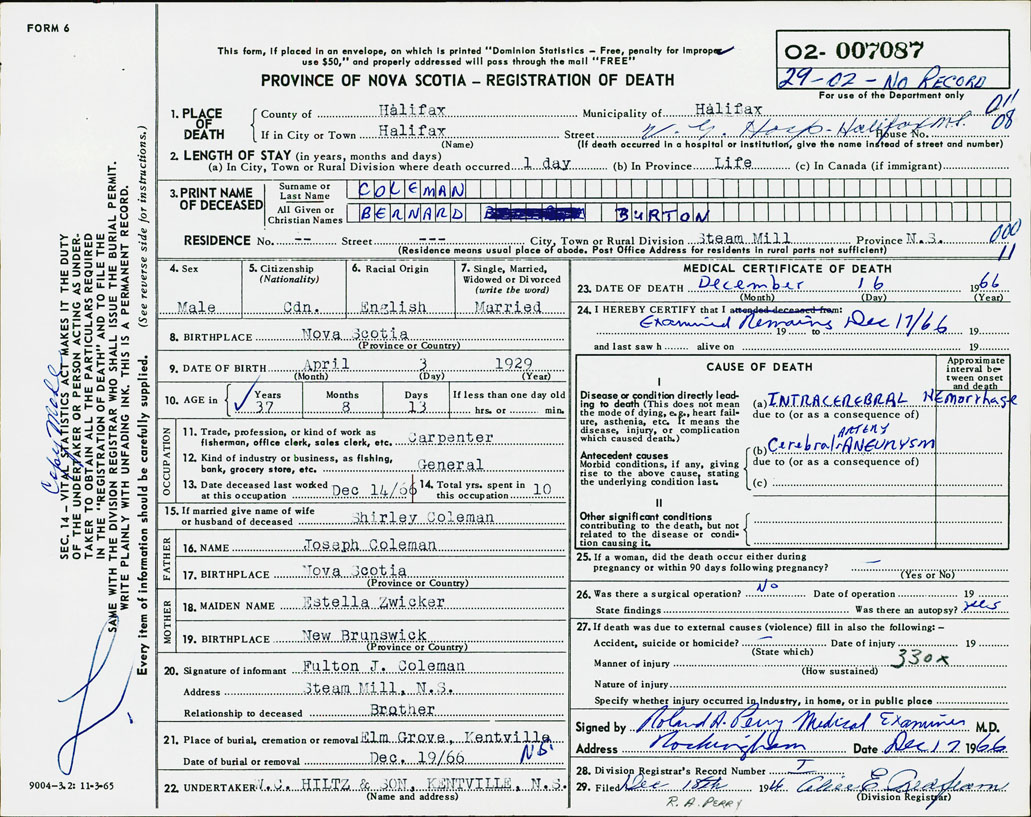 FORM 6
This form, if placed in an envelope, on which is printed "Dominion Statistics – Free, penalty for improper
use $50," and properly addressed will pass through the mail "FREE"
PROVINCE OF NOVA SCOTIA – REGISTRATION OF DEATH
02- 007087
29-02-NO RECORD
For use of the Department only
011
08
1. PLACE OF DEATH
County of Halifax Municipality of Halifax
If in City or Town Halifax Street V. G. Hosp-Halifax House No.
(Name) (If death occurred in a hospital or institution, give the name instead of street and number)
2. LENGTH OF STAY (in years, months and days)
(a) In City, Town or Rural Division where death occurred 1 day (b) In Province Life (c) In Canada (if immigrant)
3. PRINT NAME OF DECEASED
Surname or Last Name COLEMAN
All Given or Christian Names BERNARD BURTON
RESIDENCE No. -- Street --- City, Town or Rural Division Steam Mill Province N.S.
(Residence means usual place of abode. Post Office Address for residents in rural parts not sufficient)
000
11
4. Sex
Male
5. Citizenship
(Nationality)
Cdn.
6. Racial Origin
English
7. Single, Married,
Widowed or Divorced
(write the word)
Married
8. BIRTHPLACE Nova Scotia
(Province or Country)
9. DATE OF BIRTH April 3 1929
(Month) (Day) (Year)
10. AGE in Years Months Days If less than one day old
37 8 13 hrs. or min.
OCCUPATION
11. Trade, profession, or kind of work as
fisherman, office clerk, sales clerk, etc. Carpenter
12. Kind of industry or business, as fishing,
bank, grocery store, etc. General
13. Date deceased last worked
at this occupation Dec 14/66
14. Total yrs. spent in
this occupation 10
15. If married give name of wife
or husband of deceased Shirley Coleman
FATHER
16. NAME Joseph Coleman
17. BIRTHPLACE Nova Scotia
(Province or Country)
MOTHER
18. MAIDEN NAME Estella Zwicker
19. BIRTHPLACE New Brunswick
(Province or Country)
20. Signature of informant Fulton J. Coleman
Address Steam Mill, N.S.
Relationship to deceased Brother
21. Place of burial, cremation or removal Elm Grove, Kentville
N.S.
Date of burial or removal Dec. 19/66
22. UNDERTAKER W.C. HILTZ & SON, KENTVILLE, N.S.
(Name and address)
MEDICAL CERTIFICATE OF DEATH
23. DATE OF DEATH December 16 1966
(Month) (Day) (Year)
24. I HEREBY CERTIFY that I attended deceased from:
Examined Remains Dec 17/66
19 to 19
and last saw h alive on 19
CAUSE OF DEATH
Approximate interval between onset and death
I
Disease or condition directly leading to death (This does not mean the mode of dying, e.g., heart failure, asthenia, etc. It means the disease, injury, or complication which caused death.)
(a) INTRACEREBRAL HEmorrhage
due to (or as a consequence of)
ARTERY
(b) Cerebral ANEURYSM
due to (or as a consequence of)
(c)
Antecedent causes
Morbid conditions, if any, giving rise to the above cause, stating the underlying condition last.
II
Other significant conditions
contributing to the death, but not related to the disease or condition causing it.
25. If a woman, did the death occur either during
pregnancy or within 90 days following pregnancy? –
(Yes or No)
26. Was there a surgical operation? No Date of operation 19
State findings Was there an autopsy? yes
27. If death was due to external causes (violence) fill in also the following: –
Accident, suicide or homicide? – Date of injury 19
(State which)
Manner of injury 330x
(How sustained)
Nature of injury
Specify whether injury occurred in industry, in home, or in public place
Signed by Roland A. Perry Medical Examiner M.D.
Address Rockingham Date Dec 17 1966
28. Division Registrar's Record Number
29. Filed Dec 18th 19
(Division Registrar)
R. A. PERRY
SEC. 14 – VITAL STATISTICS ACT MAKES IT THE DUTY
OF THE UNDERTAKER OR PERSON ACTING AS UNDER-
TAKER TO OBTAIN ALL THE PARTICULARS REQUIRED
IN THE "REGISTRATION OF DEATH" AND TO FILE THE
SAME WITH THE DIVISION REGISTRAR WHO SHALL ISSUE THE BURIAL PERMIT.
WRITE PLAINLY WITH UNFADING INK. THIS IS A PERMANENT RECORD.
Every item of information should be carefully supplied. (See reverse side for instructions.)
9004-3.2: 11-3-65